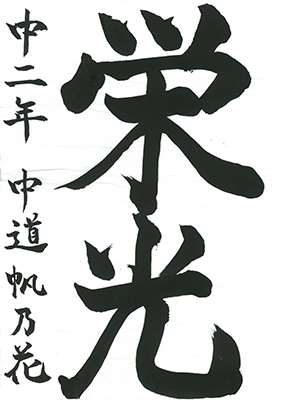 栄光
中二年 中道帆乃花